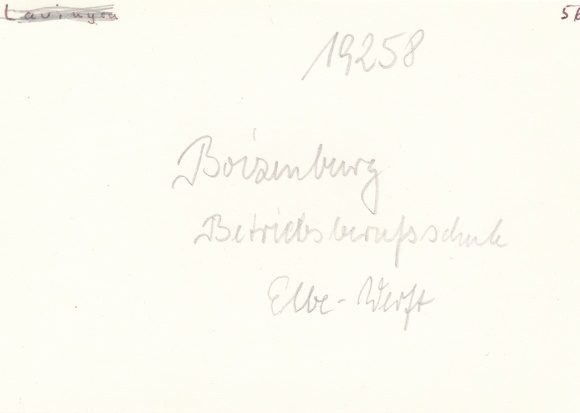 19258
Boizenburg
Betriebsberufsschule
Elbe-Werft